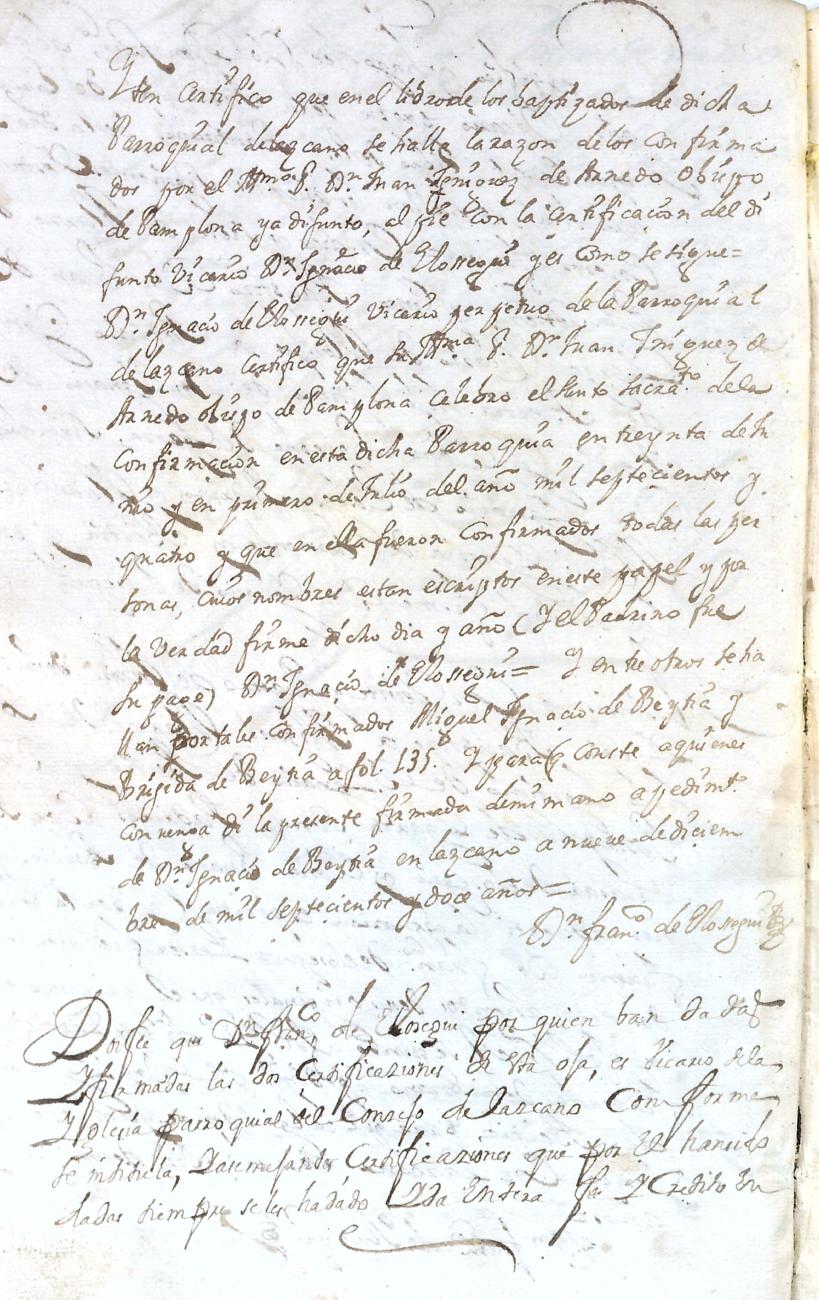 Yten Certifico que en el libro de los baptizados de dicha
Parroquial de lazcano se halla la razon de los Confirma
dos por el Illmo S. Dn Juan Iñiguez de Arnedo Obispo
de Pamplona ya difunto, al pie con la Certificacion del di
funto Vicario Dn Ignacio de Elossegui y es Como se sigue=
Dn Ignacio de Elossegui Vicario perpetuo de la Parroquial
de lazcano Certifico que su Illma S. Dn Juan Iñiguez de
Arnedo obispo de Pamplona Celebro el Santo Sacrato de la
Confirmacion en esta dicha Parroquia en treynta de Iu
nio y en primero de Iulio del año mil septecientos y
quatro y que en ella fueron Confirmados todas las per
sonas, cuios nombres estan escriptos en este papel y por
la verdad firme dicho dia y año (Y el Padrino fue
su page) Dn Ignacio de Elossegui= Y entre otros se ha
llan por tales confirmados Miguel Ignacio de Beytia y
Brigida de Beytia a fol. 135. Y para q conste a quienes
convenga di la presente firmada de mi mano a pedimto
de Dn Ignacio de Beytia en lazcano a nueve de diciem
bre de mil septecientos y doce años=
Dn franco de Elossegui
Doi fee que Dn Franco de Elosegui por quien ban dadas
Y firmadas las dos Certificaziones de esta oja, es Vicario de la
Yglesia parroquial del Conzejo de Lazcano Conforme
se intitula, Y a semejantes Certificaziones que por el han sido
dadas siempre se les ha dado Y da Entera fee Y Credito En